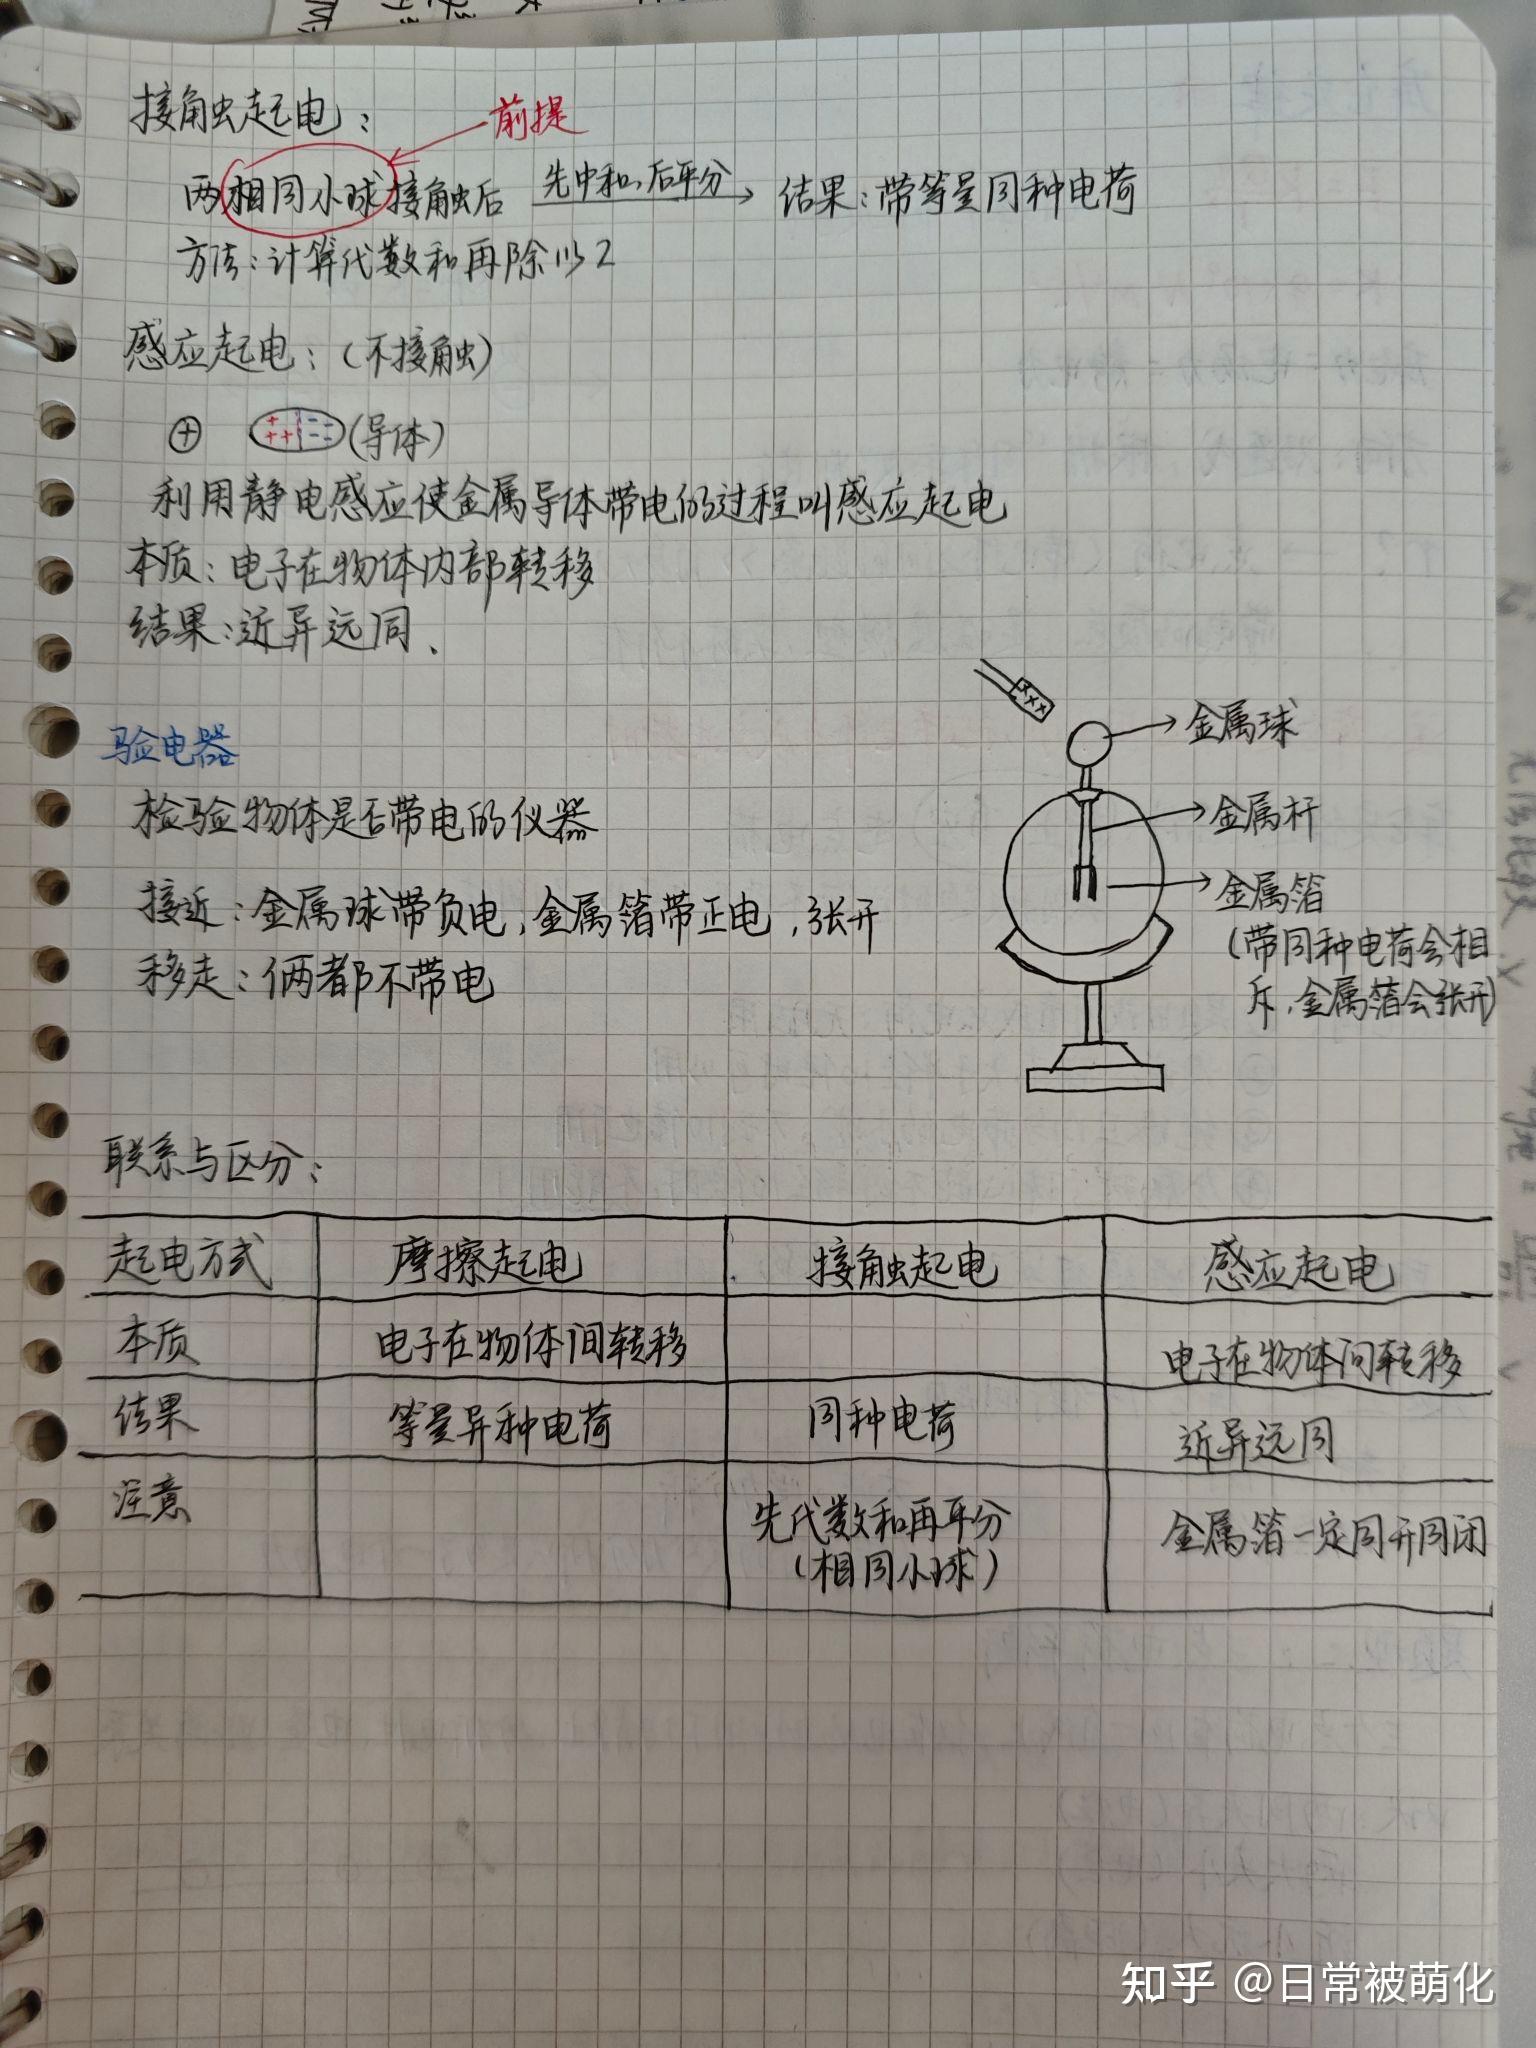 接触起电：
前提
两相同小球接触后 先中和，后平分 结果：带等量同种电荷
方法：计算代数和再除以2
感应起电：（不接触）
⊕ ++ -- ++ -- （导体）
利用静电感应使金属导体带电的过程叫感应起电
本质：电子在物体内部转移
结果：近异远同、
验电器
检验物体是否带电的仪器
接近：金属球带负电，金属箔带正电，张开
移走：俩都不带电
金属球
金属杆
金属箔
（带同种电荷会相
斥，金属箔会张开）
联系与区分：
起电方式 摩擦起电 接触起电 感应起电
本质 电子在物体间转移 电子在物体间转移
结果 等量异种电荷 同种电荷 近异远同
注意 先代数和再平分 金属箔一定同开同闭
（相同小球）
知乎 @日常被萌化